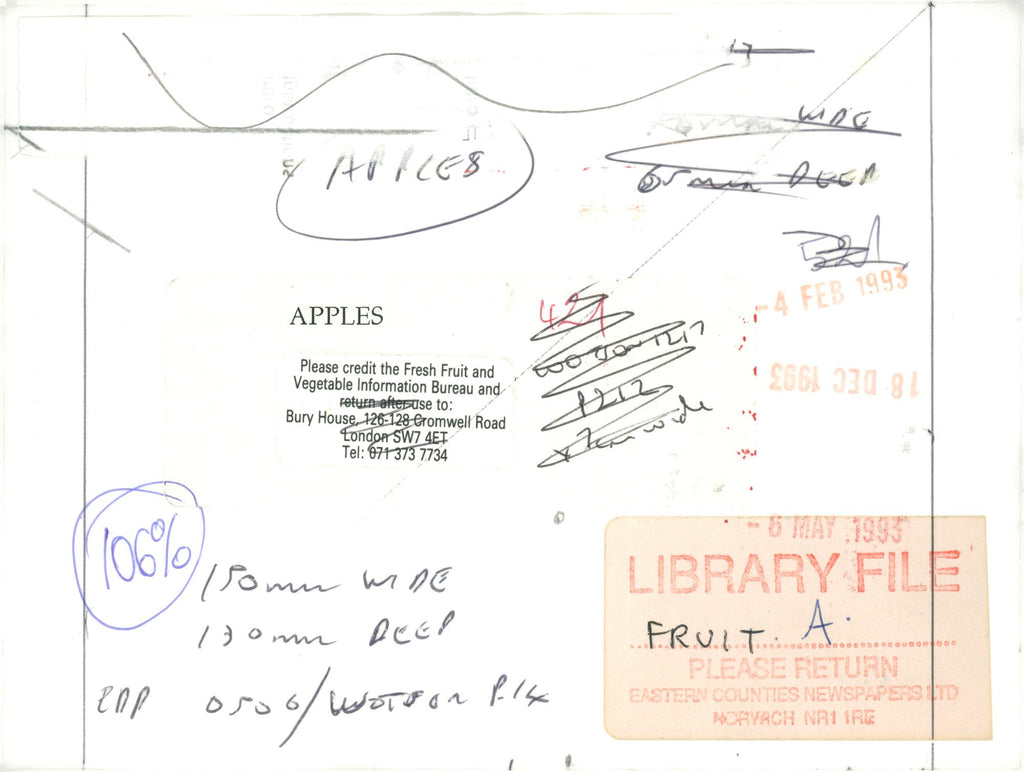 17
WIDE
APPLES
65mm DEEP
-4 FEB 1993
18 DEC 1993
APPLES
421
Please credit the Fresh Fruit and
Vegetable Information Bureau and
return after use to:
Bury House, 126-128 Cromwell Road
London SW7 4ET
Tel: 071 373 7734
1212
wide
106%
150mm WIDE
130mm DEEP
0506/ P.14
- 6 MAY 1993
LIBRARY FILE
FRUIT. A.
PLEASE RETURN
EASTERN COUNTIES NEWSPAPERS LTD
NORWICH NR1 1RE